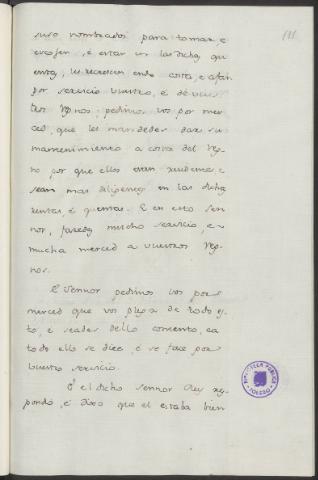 111
suso nombrados para tomar, e
escojer, e estar en las dichas qu
entas, les recrescen ende costa, e afan
por servicio vuestro, e de vues
tros Regnos: pedimos vos por mer
ced, que les mandedes dar su
mantenimiento a costa del reg
no por que ellos esten prudemte, e
sean mas diligentes en las dichas
rentas, e quentas. E en esto Sen
nor, faredes mucho servicio, e
mucha merced a vuestros Reg
nos.
E Sennor pedimos vos por
merced que vos plega de todo es
to, e seades dello contento, ca
todo ello se dice, e se face por
vuestro servicio.
E el dicho Sennor Rey res
pondió, e dixo que el estaba bien
BIBLIOTECA PUBLICA
TOLEDO